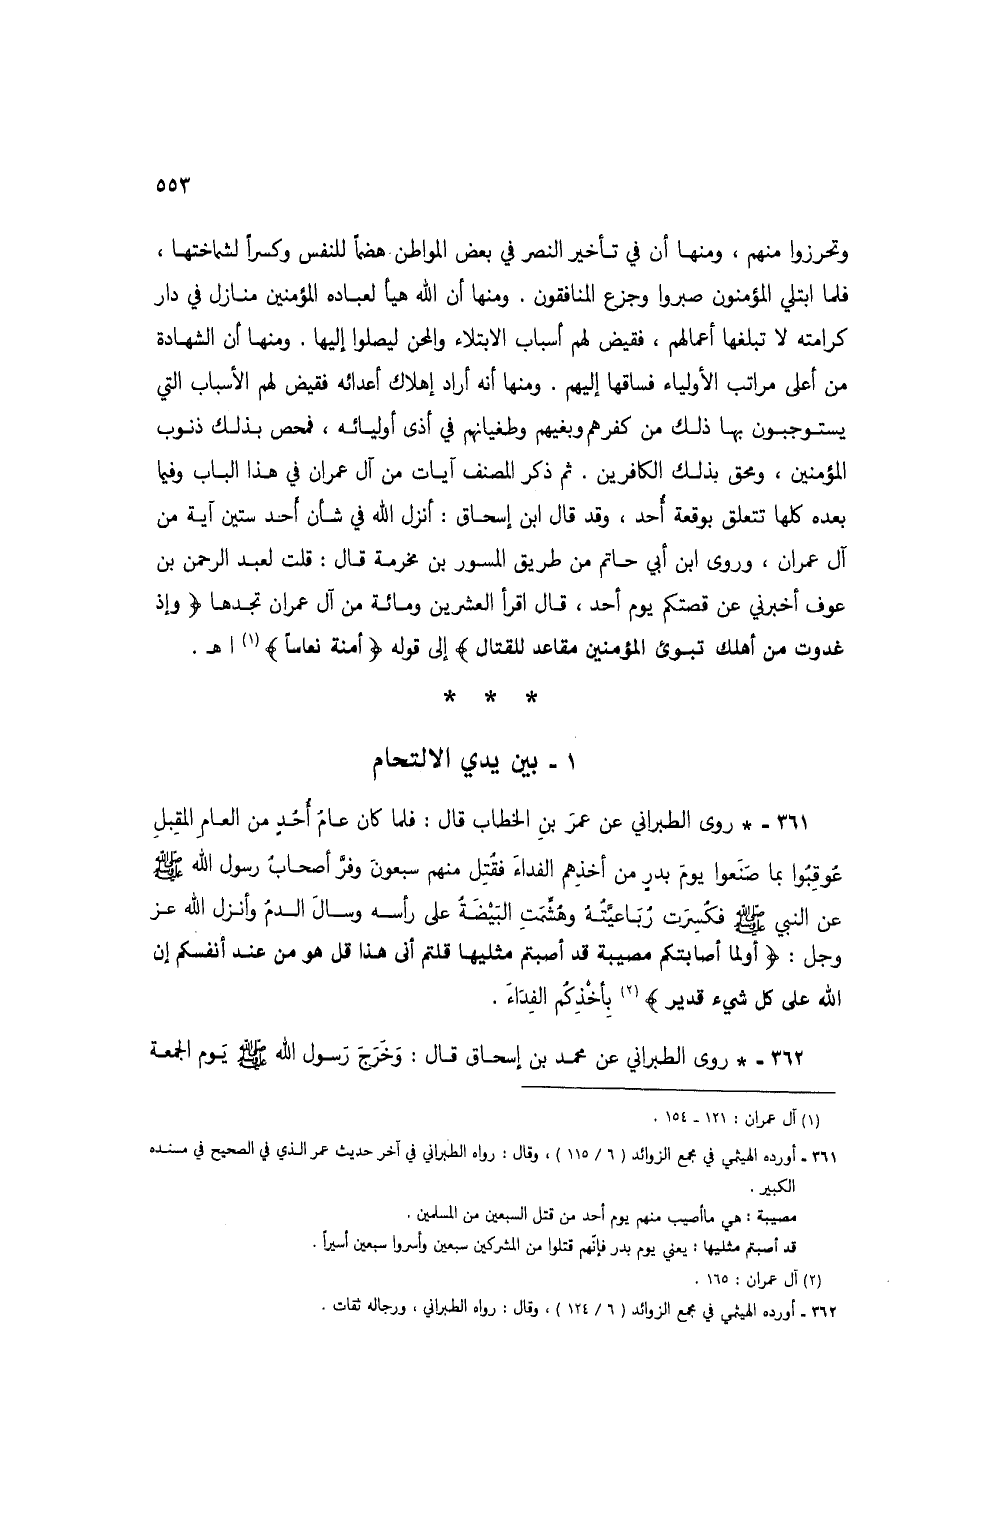 ٥٥٣
وتحرزوا منهم ، ومنهـا أن في تـأخير النصر في بعض المواطن هضماً للنفس وكسراً لشماختهـا ،
فلما ابتلي المؤمنون صبروا وجزع المنافقون . ومنها أن الله هيأ لعبـاده المؤمنين منـازل في دار
كرامته لا تبلغها أعمالهم ، فقيض لهم أسباب الابتلاء والمحن ليصلوا إليها . ومنهـا أن الشهـادة
من أعلى مراتب الأولياء فساقها إليهم . ومنها أنه أراد إهلاك أعدائه فقيض لهم الأسباب التي
يستـوجبـون بهـا ذلـك من كفرهم وبغيهم وطغيانهم في أذى أوليـائـه ، فمحص بـذلـك ذنـوب
المؤمنين ، ومحق بذلـك الكافرين . ثم ذكر المصنف آيـات من آل عمران في هـذا البـاب وفيما
بعده كلها تتعلق بوقعة أُحد ، وقد قال ابن إسحاق : أنزل الله في شـأن أُحـد ستين آيـة من
آل عمران ، وروى ابن أبي حـاتم من طريق المسـور بن مخرمـة قـال : قلت لعبـد الرحمن بن
عوف أخبرني عن قصتكم يوم أحد ، قـال اقرأ العشرين ومـائـة من آل عمران تجـدهـا ﴿ وإذ
غدوت من أهلك تبـوئ المؤمنين مقاعد للقتال ﴾ إلى قوله ﴿ أمنة نعاساً ﴾ (١) ا هـ .
* * *
١ ـ بين يدي الالتحام
٣٦١ ـ * روى الطبراني عن عمرَ بنِ الخطاب قال : فلما كان عـامُ أُحُـدٍ من العـامِ المقبلِ
عُوقِبُوا بما صَنَعوا يومَ بدرٍ من أخذِهم الفداءَ فقُتِل منهم سبعونَ وفرَّ أصحابُ رسول الله ﷺ
عن النبي ﷺ فكُسِرَت رُبَـاعيَّتُـهُ وهُشِّمَتِ البَيْضَـةُ على رأسـه وسـالَ الـدمُ وأنـزل الله عـز
وجل : ﴿ أولما أصابتكم مصيبة قد أصبتم مثليهـا قلتم أنى هـذا قل هو من عنـد أنفسكم إن
الله على كل شيء قدير ﴾ (٢) بِأَخْذِكُم الفِدَاءَ .
٣٦٢ ـ * روى الطبراني عن محمـد بن إسحـاق قـال : وَخَرَجَ رَسـول الله ﷺ يَـوم الجمعة
(١) آل عمران : ١٢١ ـ ١٥٤ .
٣٦١ ـ أورده الهيثمي في مجمع الزوائد ( ٦ / ١١٥ ) ، وقال : رواه الطبراني في آخر حديث عمر الـذي في الصحيح في مسنـده
الكبير .
مصيبة : هي ماأصيب منهم يوم أحد من قتل السبعين من المسلمين .
قد أصبتم مثليها : يعني يوم بدر فإنّهم قتلوا من المشركين سبعين وأسروا سبعين أسيراً .
(٢) آل عمران : ١٦٥ .
٣٦٢ ـ أورده الهيثمي في مجمع الزوائد ( ٦ / ١٢٤ ) ، وقال : رواه الطبراني ، ورجاله ثقات .